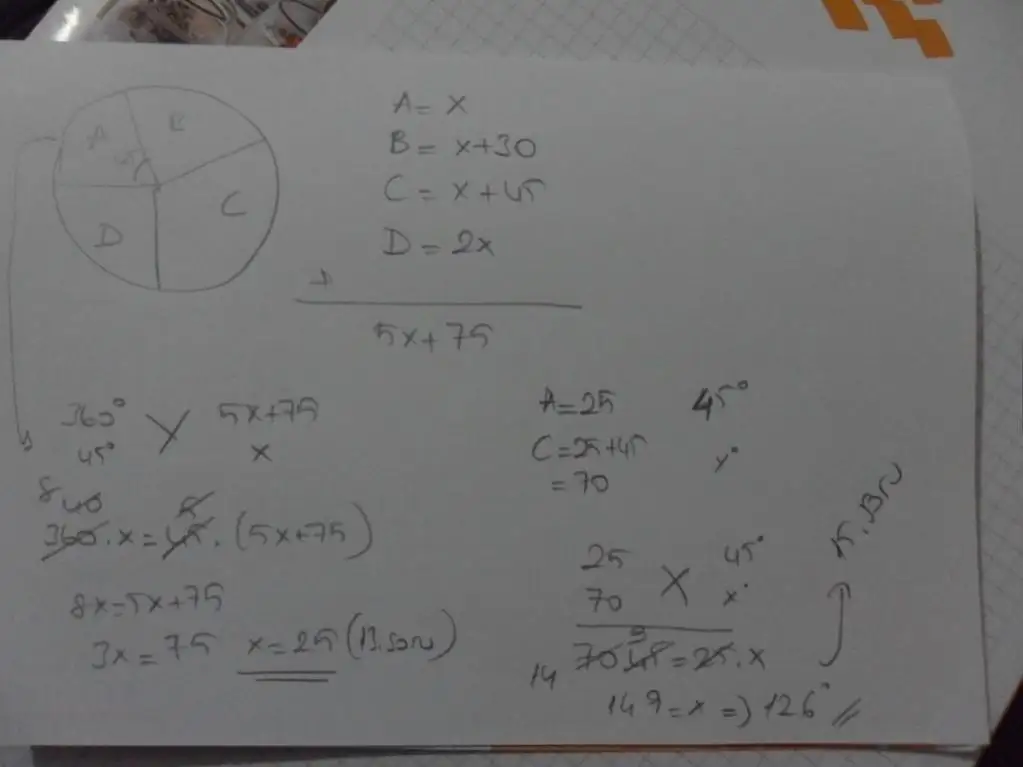 A
B
45°
C
D
A = x
B = x+30
C = x+45
D = 2x
+
5x+75
360° 5x+75
45° x
8 40 5
360.x=45.(5x+75)
8x=5x+75
3x=75 x=25 (13.soru)
A=25 45°
C=25+45 x°
=70
15.
25 45°
70 x°
9
14 70.45=25.x
14.9=x=)126°//